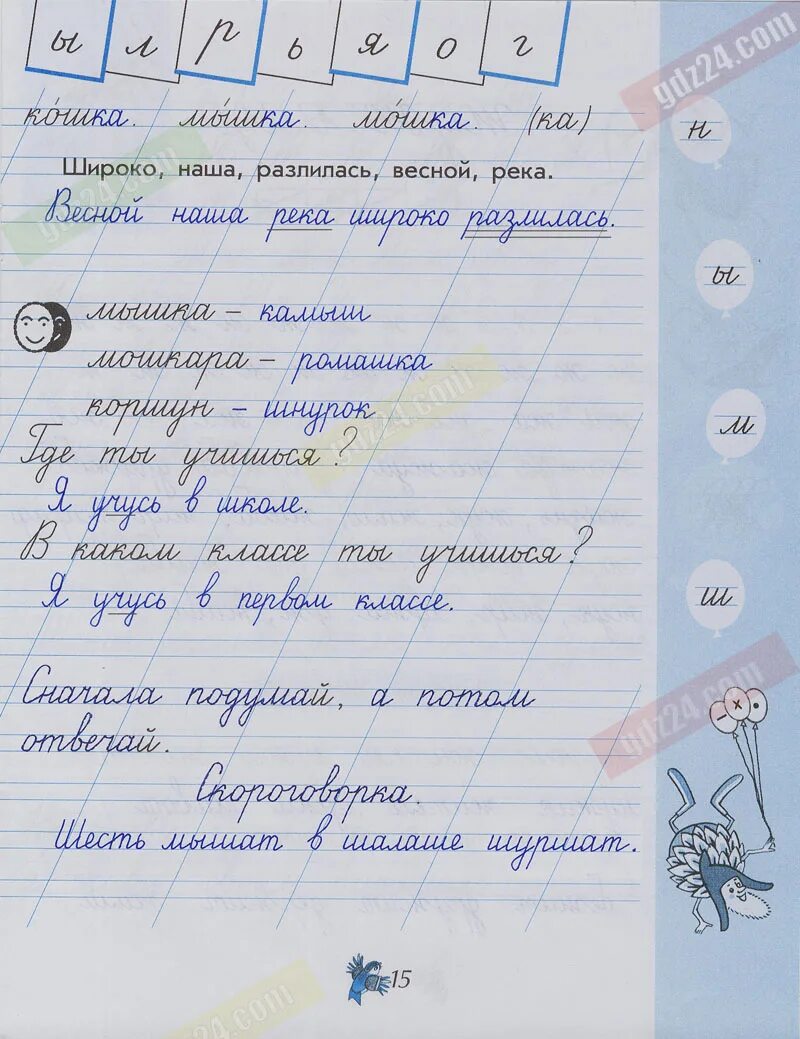 ы л р ь я о г
ко́шка. мы́шка. мо́шка. (ка)
н
Широко, наша, разлилась, весной, река.
Весной наша река широко разлилась.
ы
мышка – камыш
мошкара – ромашка
коршун – шнурок
м
Где ты учишься?
Я учусь в школе.
В каком классе ты учишься?
Я учусь в первом классе.
ш
Сначала подумай, а потом
отвечай.
Скороговорка.
Шесть мышат в шалаше шуршат.
15
gdz24.com
gdz24.com
gdz24.com
gdz24.com
z24.com